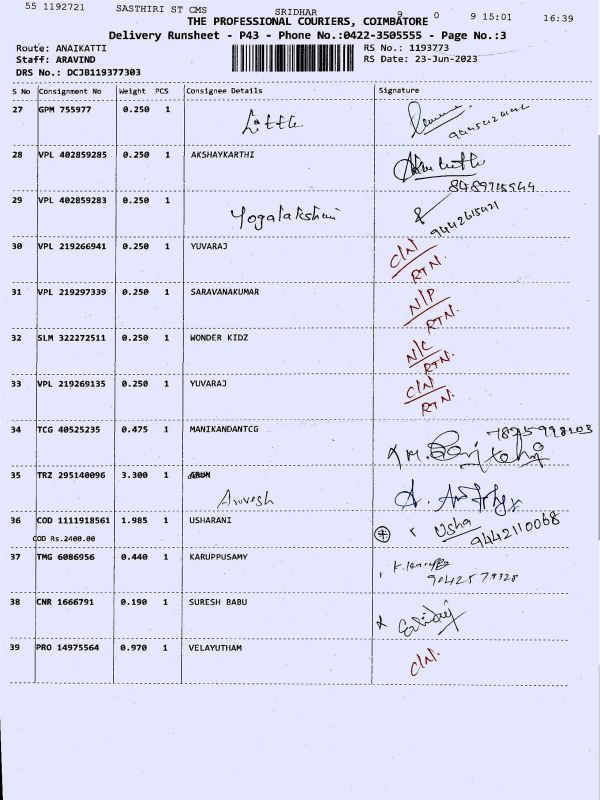 55 1192721 SASTHIRI ST CMS SRIDHAR 9 0 9 15:01 16:39
THE PROFESSIONAL COURIERS, COIMBATORE
Delivery Runsheet - P43 - Phone No.:0422-3505555 - Page No.:3
Route: ANAIKATTI RS No.: 1193773
Staff: ARAVIND RS Date: 23-Jun-2023
DRS No.: DCJB119377303
S No Consignment No Weight PCS Consignee Details Signature
27 GPM 755977 0.250 1
28 VPL 402859285 0.250 1 AKSHAYKARTHI
29 VPL 402859283 0.250 1 Yogalakshmi
9442615421
30 VPL 219266941 0.250 1 YUVARAJ C/N
RTN.
31 VPL 219297339 0.250 1 SARAVANAKUMAR N/P
RTN.
32 SLM 322272511 0.250 1 WONDER KIDZ N/C
RTN.
33 VPL 219269135 0.250 1 YUVARAJ C/N
RTN.
34 TCG 40525235 0.475 1 MANIKANDANTCG
35 TRZ 295140096 3.300 1 ARUN
Aruvesh
36 COD 1111918561 1.985 1 USHARANI Usha
COD Rs.2400.00 9442110068
37 TMG 6086956 0.440 1 KARUPPUSAMY
38 CNR 1666791 0.190 1 SURESH BABU
39 PRO 14975564 0.970 1 VELAYUTHAM C/N.